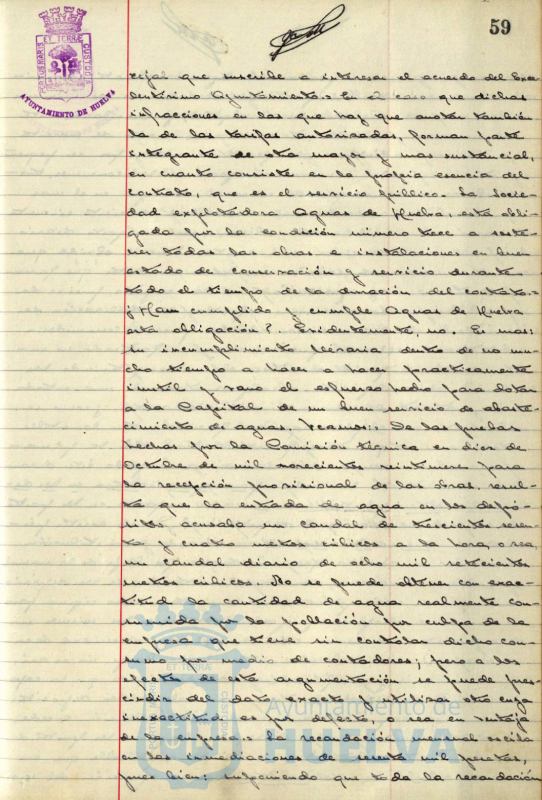 59
PORTUS MARIS ET TERRAE CUSTODIA
AYUNTAMIENTO DE HUELVA
cejal que suscribe a interesar el acuerdo del Exce
lentísimo Ayuntamiento.= En el caso que dichas
infracciones en las que hay que anotar también
la de las tarifas autorizadas, forman parte
integrante de otra mayor y mas sustancial,
en cuanto consiste en la propia esencia del
contrato, que es el servicio público.- La Socie-
dad explotadora Aguas de Huelva, está obli-
gada por la condición número trece a soste-
ner todas las obras e instalaciones en buen
estado de conservación y servicio durante
todo el tiempo de la duración del contrato.=
¿Han cumplido y cumple Aguas de Huelva
esta obligación?. Evidentemente, no. Es mas:
su incumplimiento llevaria dentro de no mu-
cho tiempo a hacer a hacer practicamente
inutil y vano el esfuerzo hecho para dotar
a la Capital de un buen servicio de abaste-
cimiento de aguas. Veamos:- De las pruebas
hechas por la Comisión técnica en diez de
Octubre de mil novecientos veintinueve para
la recepción provisional de las obras, resul-
ta que la entrada de agua en los depó-
sitos acusaba un caudal de trescientos sesen-
ta y cuatro metros cúbicos a la hora, o sea,
un caudal diario de ocho mil setecientos
metros cúbicos. No se puede obtener con exac-
titud la cantidad de agua realmente con-
sumida por la población por culpa de la
empresa que tiene sin controlar dicho con-
sumo por medio de contadores; pero a los
efectos de esta argumentación se puede pres-
cindir del dato exacto y utilizar otro cuya
inexactitud es por defecto, o sea en ventaja
de la empresa.= La recaudación mensual oscila
en las inmediaciones de sesenta mil pesetas,
pues bien: suponiendo que toda la recaudación
Ayuntamiento de
HUELVA